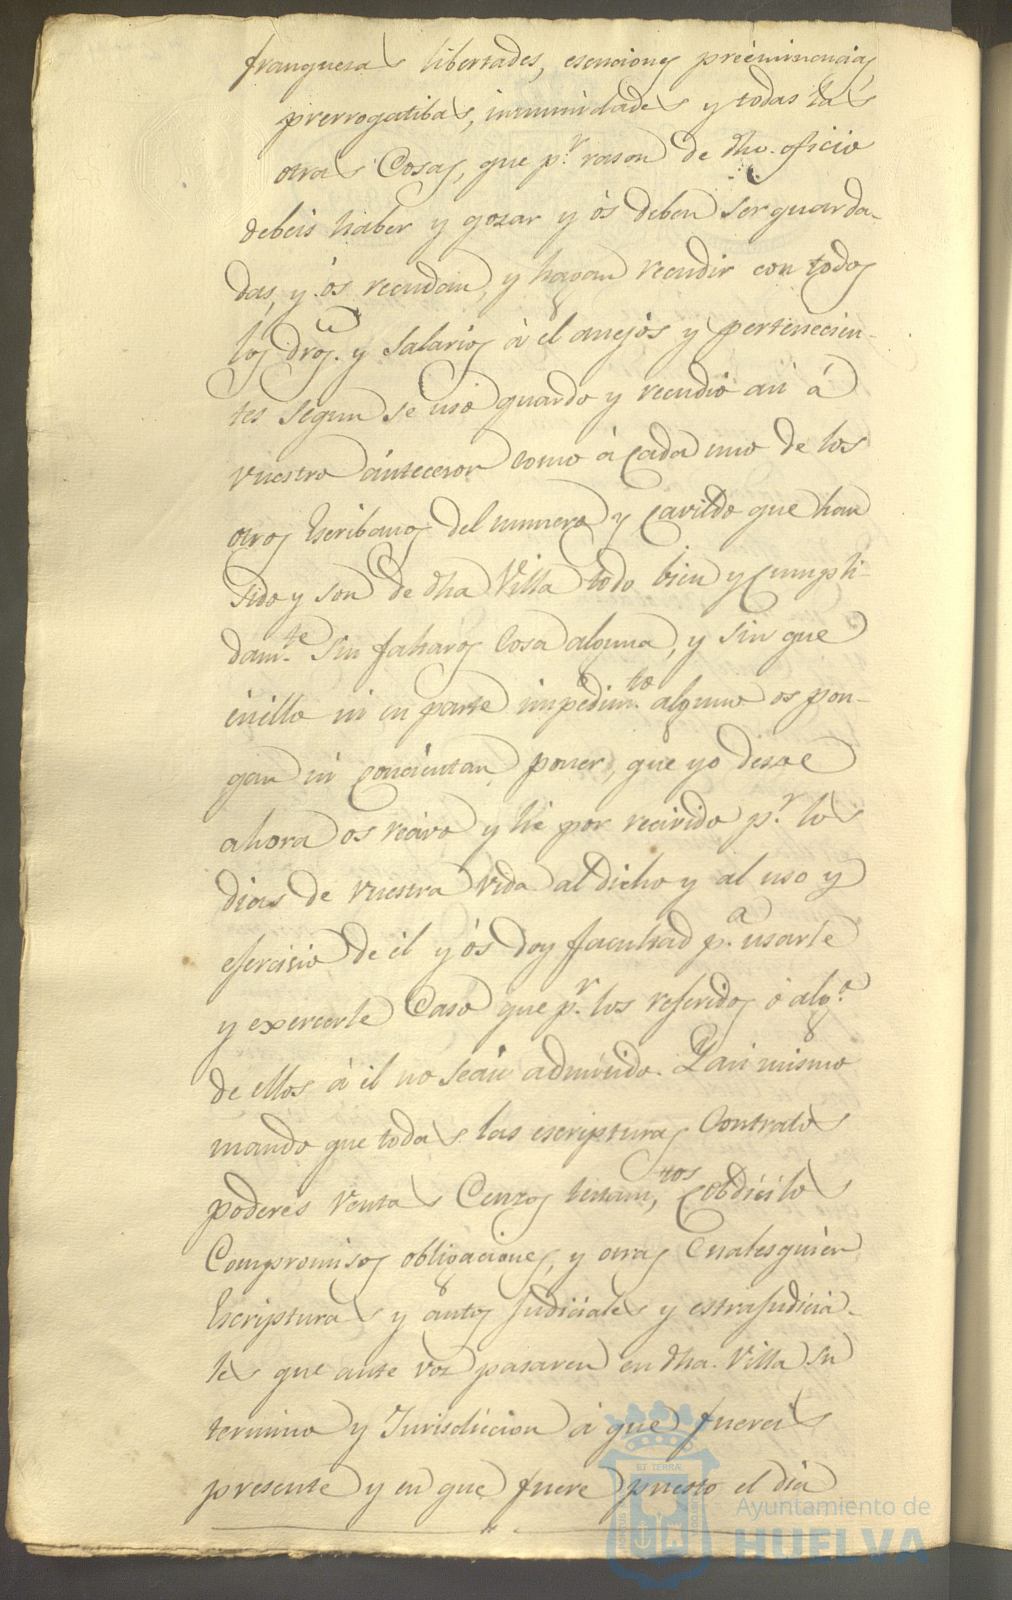 franquezas libertades, esenciones preeminencias
prerrogatibas, inmunidades y todas las
otras Cosas, que pr. rason de dho. oficio
debeis haber y gozar y os deben ser guarda-
das, y os recudan, y hagan recudir con todos
los dros. y salarios à él anejos y pertenecien-
tes segun se usó guardo y recudio asi á
vuestro antecesor como à cada uno de los
otros Escribanos del numero y cavildo que han
sido y son de dha Villa todo bien y cumpli-
damte. sin faltaros cosa alguna, y sin que
en ello ni en parte impedimto. alguno os pon-
gan ni concientan poner, que yo desde
ahora os recivo y hé por recivido pr. los
dias de vuestra vida al dicho y al uso y
esercicio de él y ós doy facultad pa. usarle
y exercerle Caso que pr. los referidos ó algo.
de ellos á él no seais admitido. Y asi mismo
mando que todas las escripturas Contratos
poderes ventas Cenzos testamtos, cobdicilos
Compromisos obligaciones, y otras Cualesquier
Escripturas y autos Judiciales y estrajudicia-
les que ante vos pasaren en dha. Villa su
termino y Jurisdiccion á que fuereis
presente y en que fuere puesto el dia
ET TERRÆ
Ayuntamiento de
HUELVA